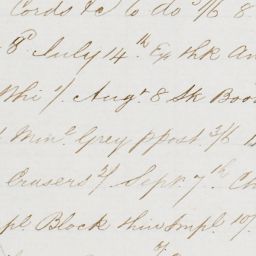 Cords &c 6 do 1/6 8
July 14th. Ex thk
Whi 1/. Augt 8 Sk Boo
Mine. Grey ppost 3/6
Erasers 2/ Septr. 7th. Ch
Block thin Impl. 10/